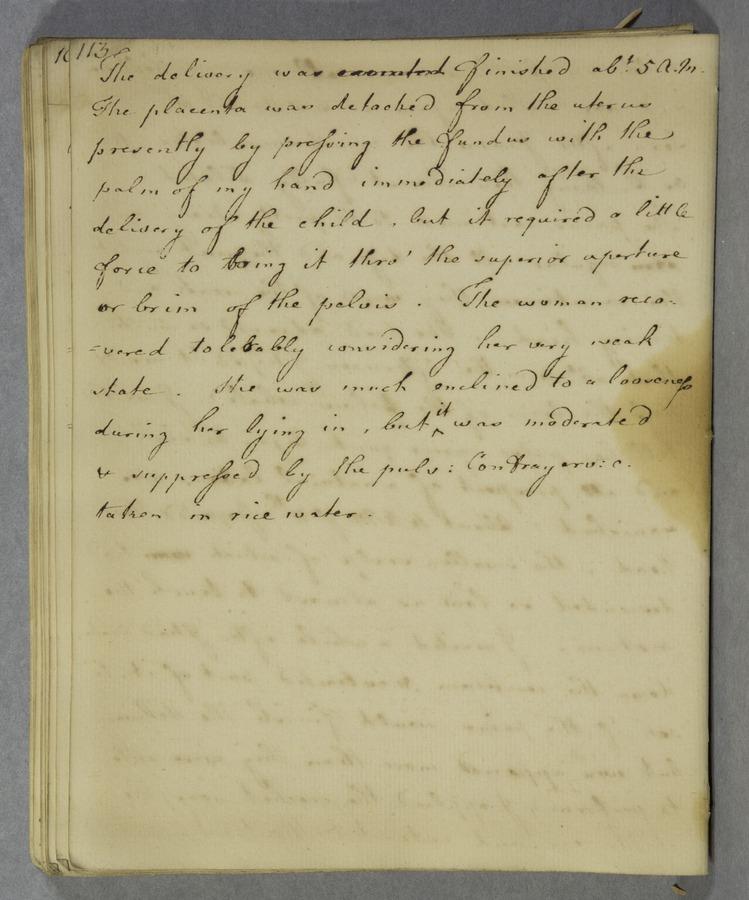 113
The delivery was finished abt. 5 A.M.
The placenta was detached from the uterus
presently by pressing the fundus with the
palm of my hand immediately after the
delivery of the child, but it required a little
force to bring it thro' the superior aperture
or brim of the pelvis. The woman reco=
=vered tolerably considering her very weak
state. She was much enclined to a looseness
during her lying in, but it was moderated
& suppressed by the pulv: Contrayerv: c.
taken in rice water.